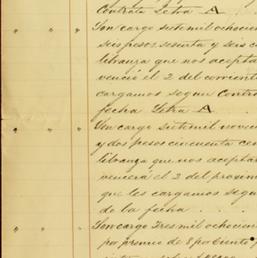 Contrata Letra A
Son cargo siete mil ochocien
seis pesos sesenta y seis c
libranza que nos acepta
venció el 2 del corriente
cargamos segun Contra
fecha Letra A
Son cargo siete mil novecien
y dos pesos cincuenta cen
libranza que nos acepta
vencerá el 2 del proxim
que les cargamos segu
de la fecha
Son cargo tres mil ochocien
por premio de 8 por ciento